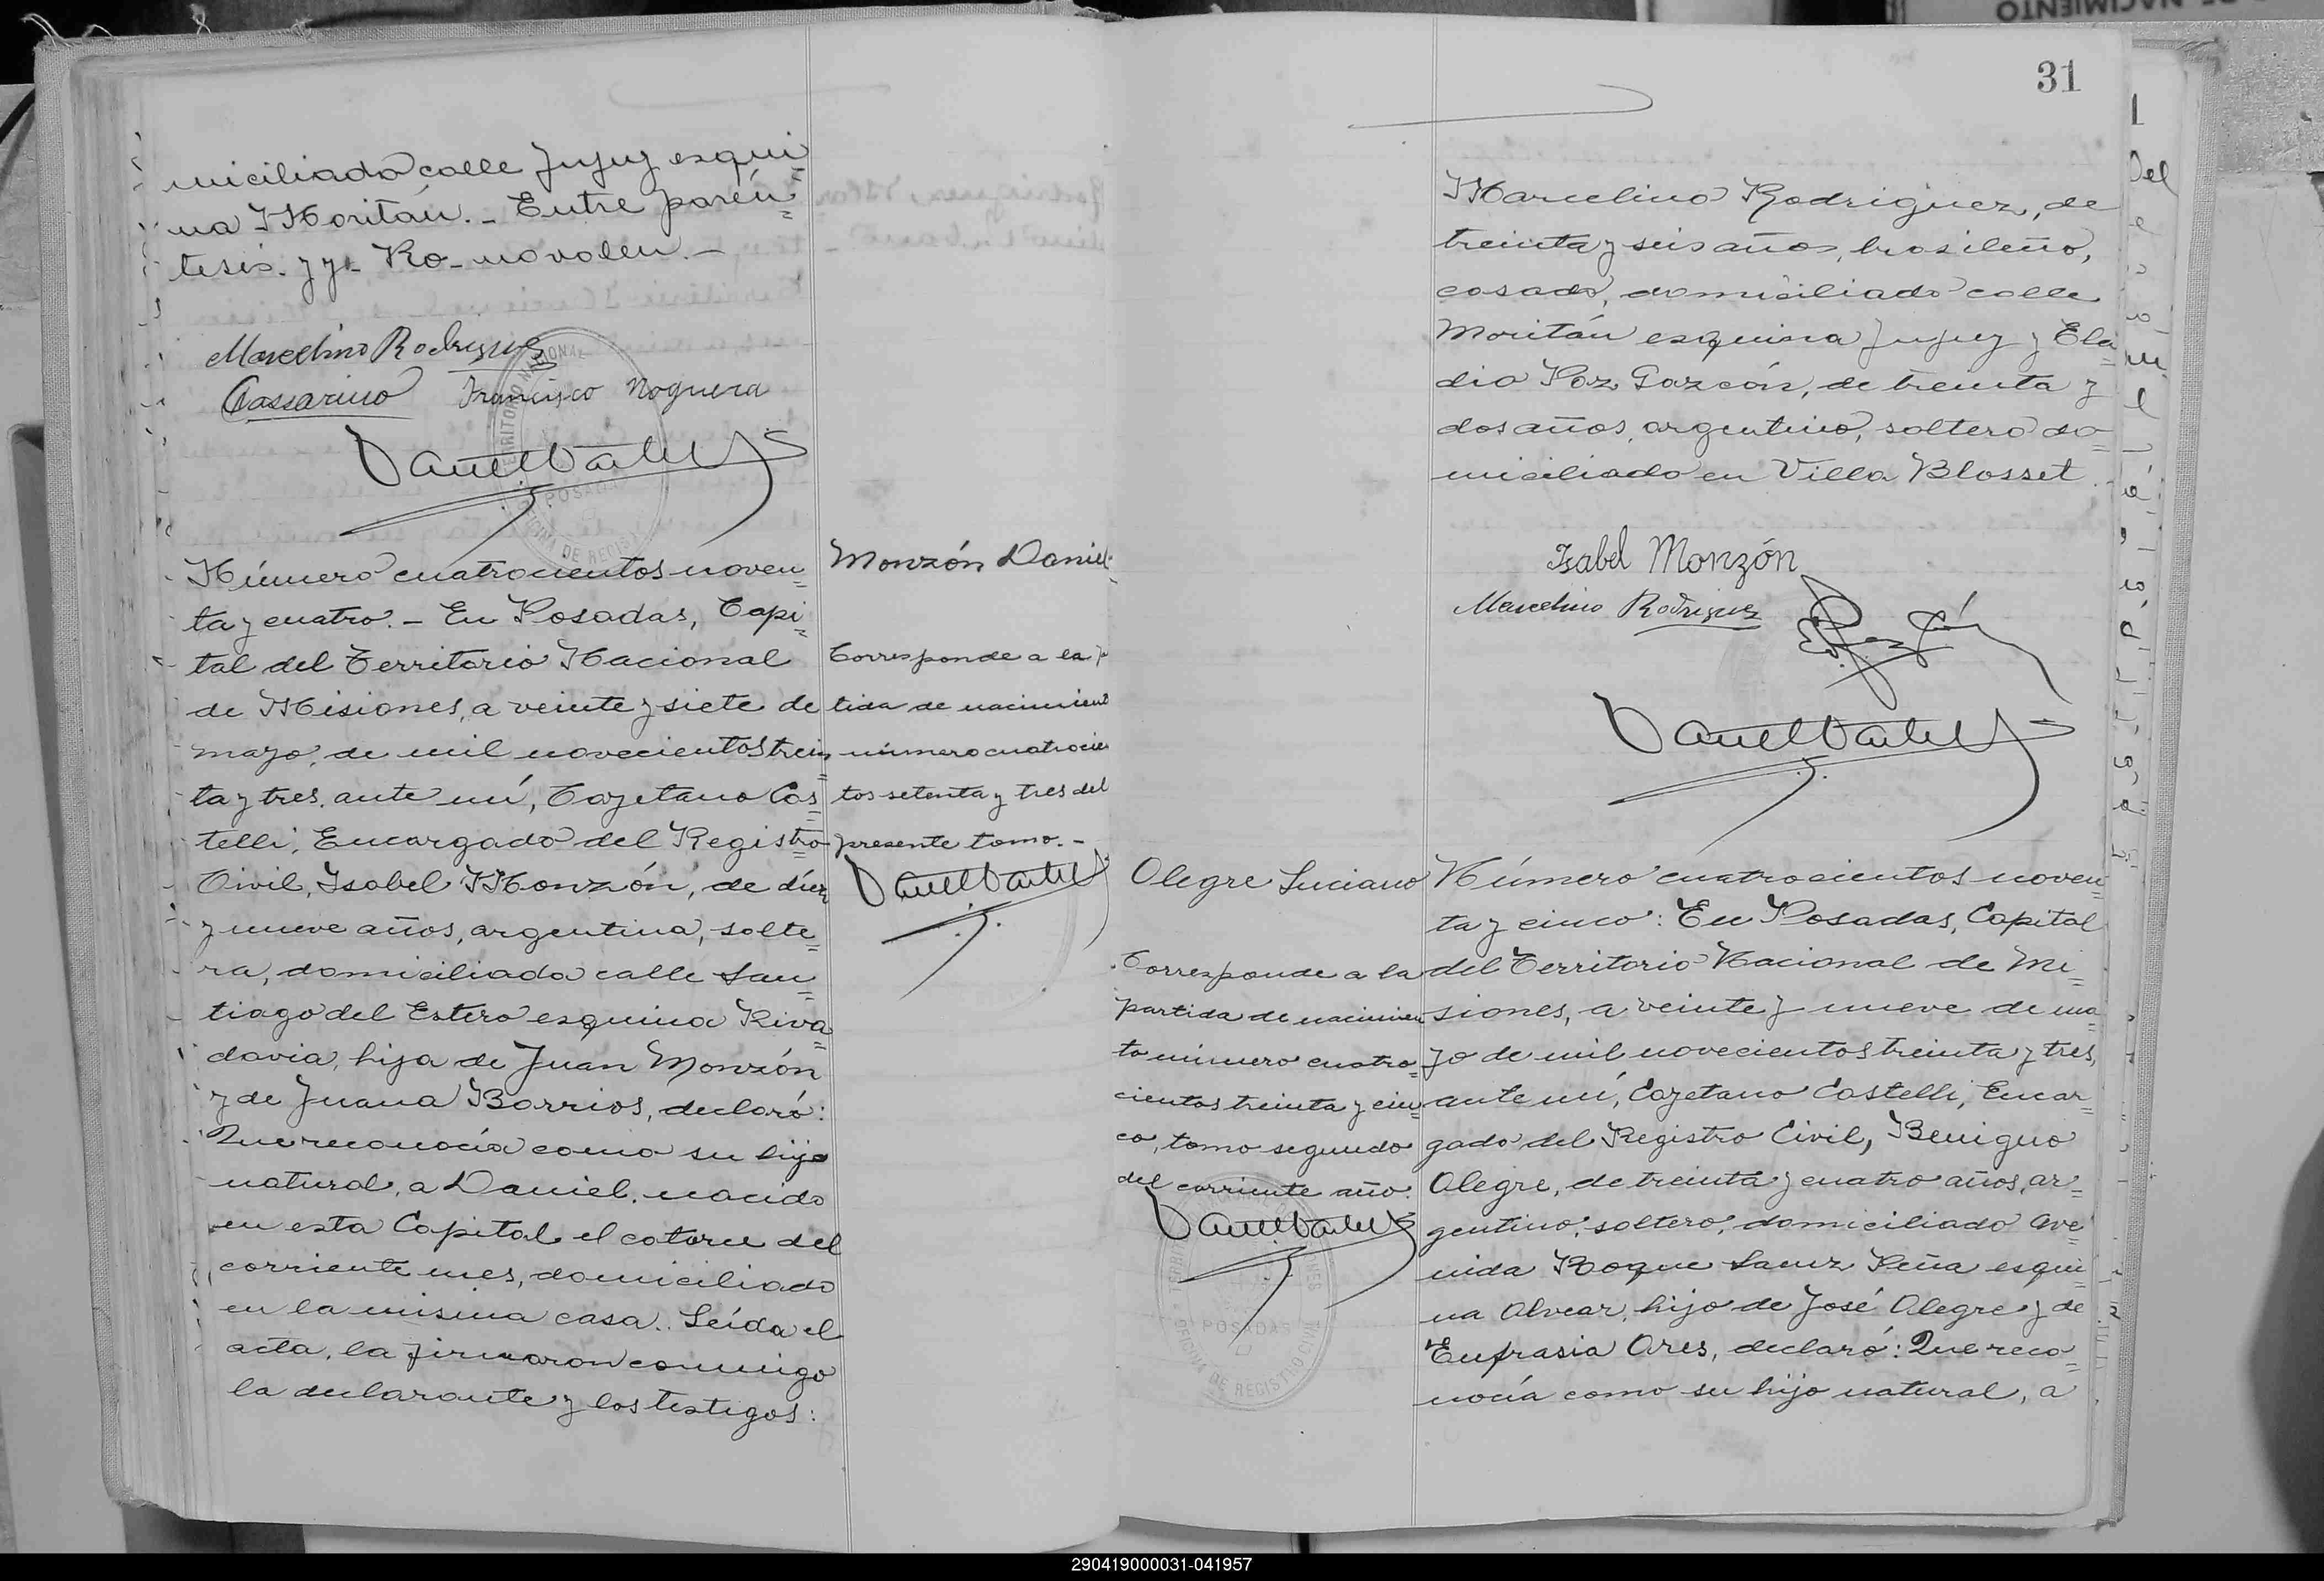 miciliado calle Jujuy esqui=
na Moritán. - Entre parén=
tesis - y y - Ro - no valen. -
Marcelino Rodriguez
Cassarino Francisco Noguera
TERRITORIO NACIONAL
POSADAS
OFICINA DE REGISTRO
Número cuatrocientos noven=
ta y cuatro. - En Posadas, Capi=
tal del Territorio Nacional
de Misiones, a veinte y siete de
mayo, de mil novecientos trein=
ta y tres, ante mí, Cayetano Cas=
telli, Encargado del Registro
Civil, Isabel Monzón, de diez
y nueve años, argentina, solte=
ra, domiciliada calle San=
tiago del Estero esquina Riva=
davia, hija de Juan Monzón
y de Juana Barrios, declaró:
Que reconocía como su hijo
natural, a Daniel, nacido
en esta Capital el catorce del
corriente mes, domiciliado
en la misma casa. Leída el
acta, la firmaron conmigo
la declarante y los testigos:
Monzón Daniel
Corresponde a la
tida de nacimient
número cuatrocien
tos setenta y tres del
presente tomo. -
31
Marcelino Rodriguez, de
treinta y seis años, brasileño,
casado, domiciliado calle
Moritán esquina Jujuy y Ela=
dio Paz Garzón, de treinta y
dos años, argentino, soltero do=
miciliado en Villa Blosset
Isabel Monzón
Marcelino Rodriguez
Alegre Luciano
Corresponde a la
partida de nacimien
to número cuatro=
cientos treinta y cin=
co, tomo segundo
del corriente año.
POSADAS
OFICINA DE REGISTRO CIVIL
Número cuatrocientos noven=
ta y cinco: En Posadas, Capital
del Territorio Nacional de Mi=
siones, a veinte y nueve de ma=
yo de mil novecientos treinta y tres,
ante mí, Cayetano Castelli, Encar=
gado del Registro Civil, Benigno
Alegre, de treinta y cuatro años, ar=
gentino, soltero, domiciliado Ave=
nida Roque Saenz Peña esqui=
na Alvear, hijo de José Alegre y de
Eufrasia Ares, declaró: Que reco=
nocía como su hijo natural, a
290419000031-041957